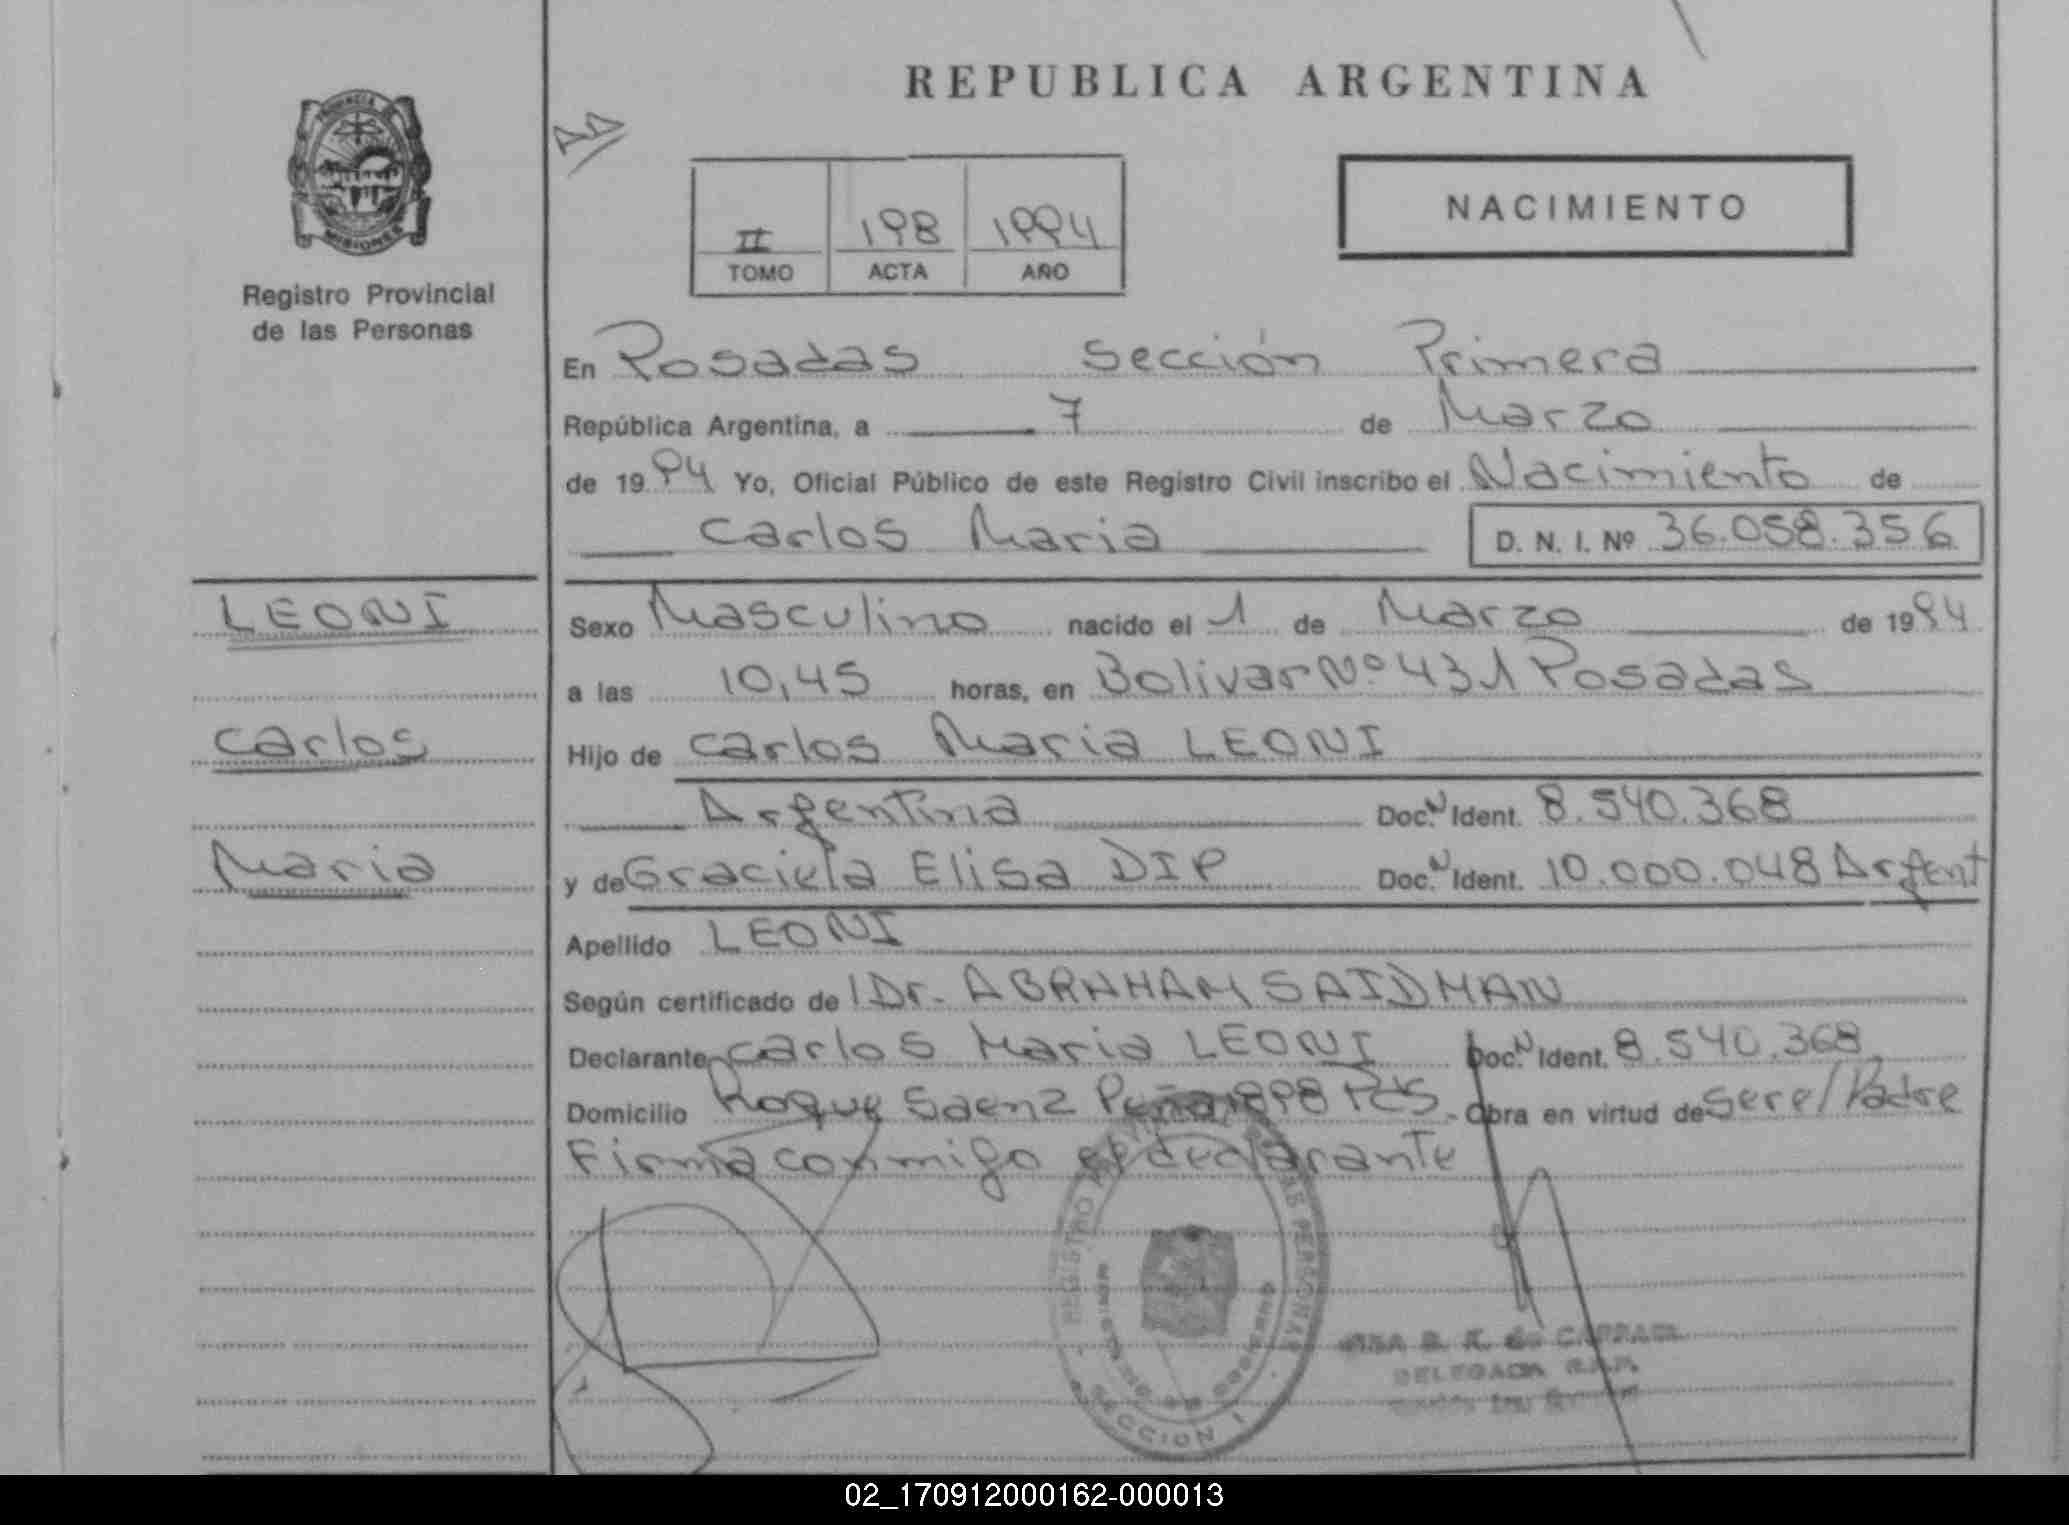 REPUBLICA ARGENTINA
PROVINCIA
MISIONES
Registro Provincial
de las Personas
II 198 1994
TOMO ACTA AÑO
NACIMIENTO
En Posadas Sección Primera
República Argentina, a 7 de Marzo
de 1994 Yo, Oficial Público de este Registro Civil inscribo el Nacimiento de
Carlos Maria D. N. I. Nº 36.058.356
LEONI
Carlos
Maria
Sexo Masculino nacido el 1 de Marzo de 1994
a las 10,45 horas, en Bolivar Nº 431 Posadas
Hijo de Carlos Maria LEONI
Argentina Doc. N Ident. 8.540.368
y de Graciela Elisa DIP Doc. N Ident. 10.000.048 Argent
Apellido LEONI
Según certificado de Dr. ABRAHAM SAIDMAN
Declarante Carlos Maria LEONI Doc. N Ident. 8.540.368
Domicilio Roque Saenz Peña 1898 Pdas. Obra en virtud de Sere/Padre
Firma conmigo el declarante
REGISTRO DE LAS PERSONAS
SECCION I
DELEGADA
02_170912000162-000013